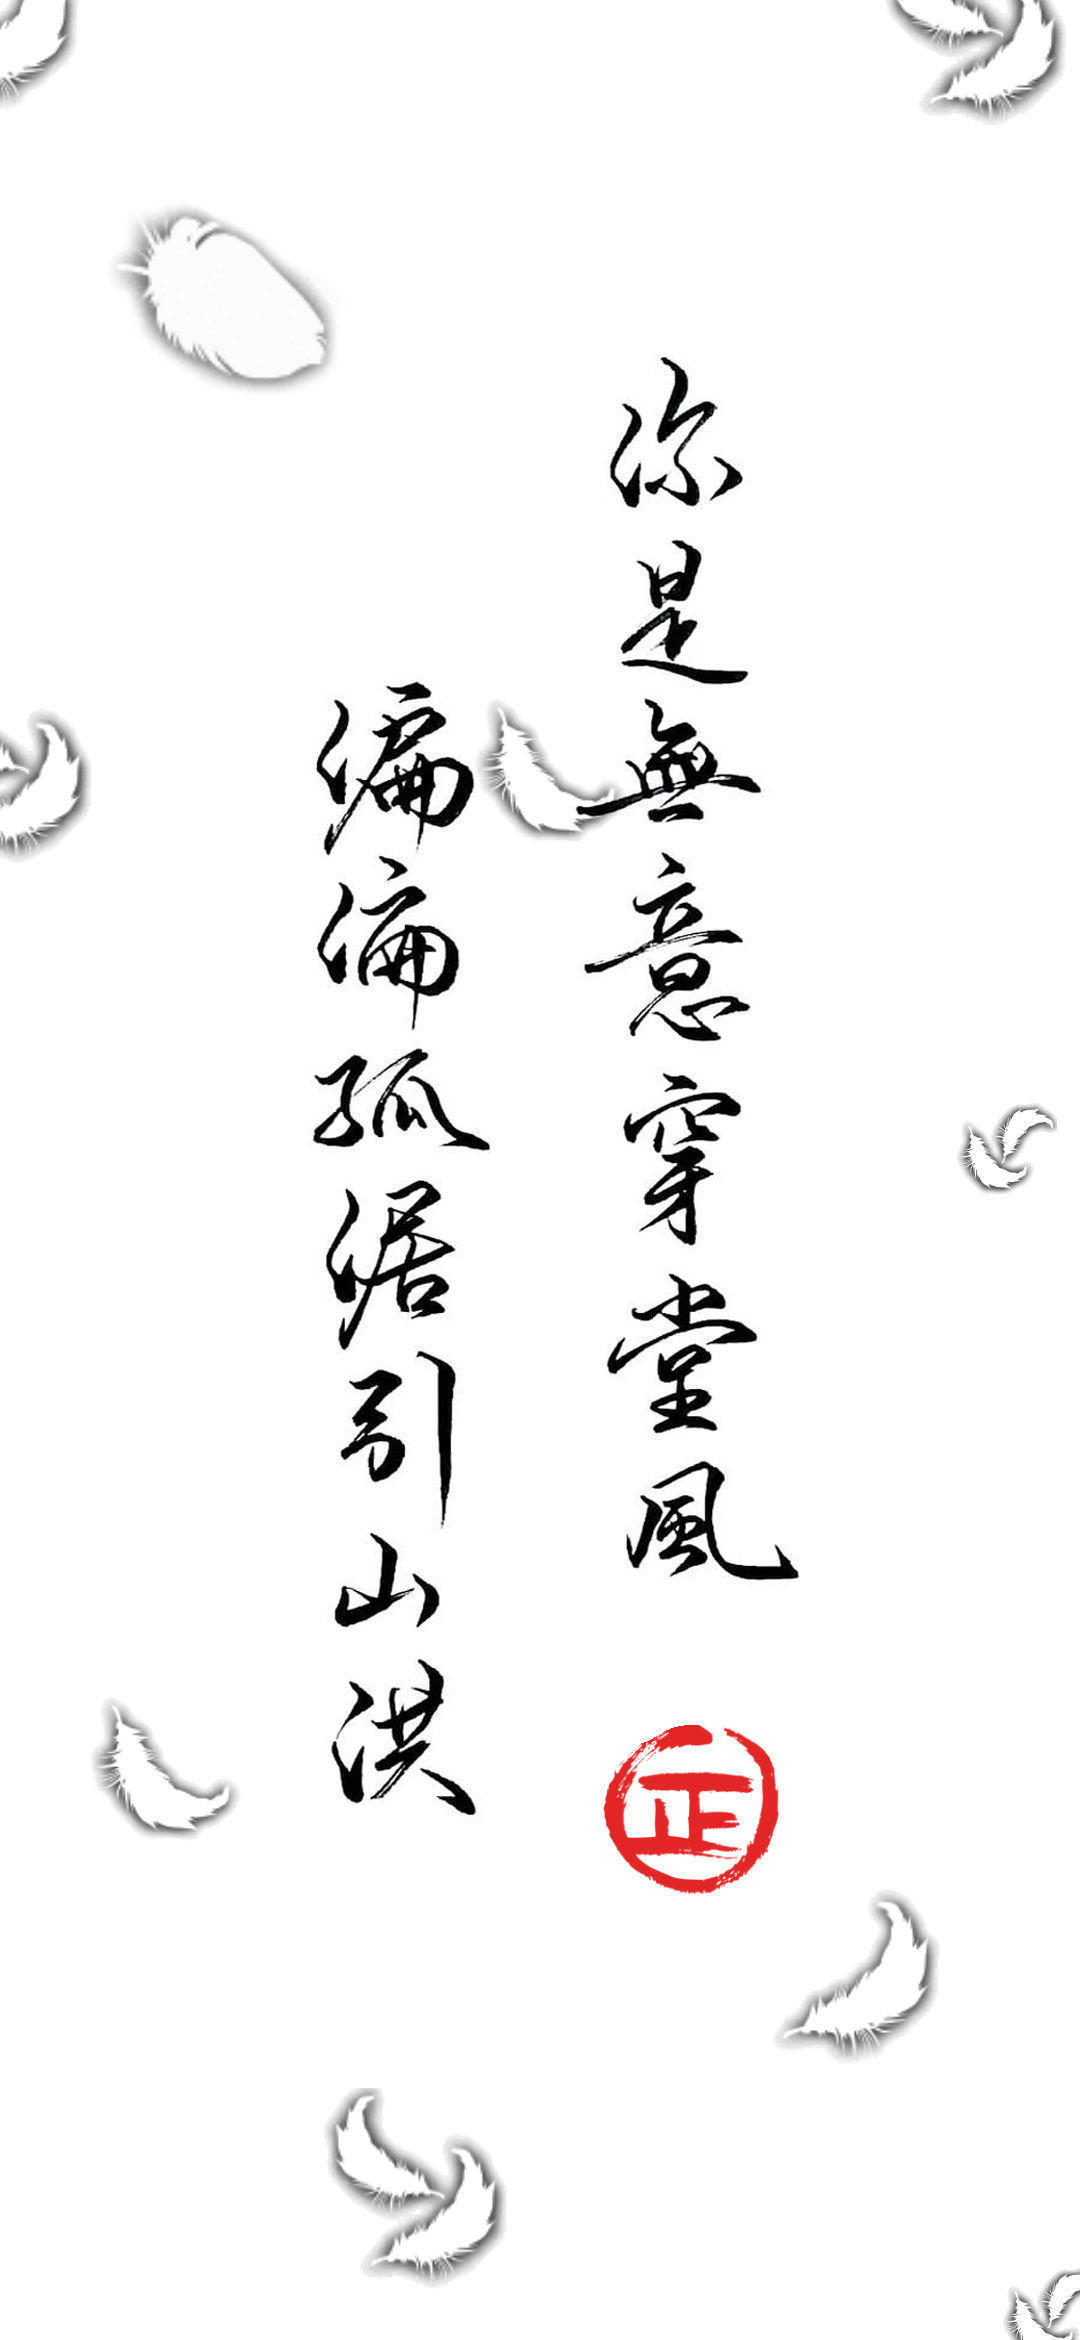 你是無意穿堂風
偏偏孤倨引山洪
正